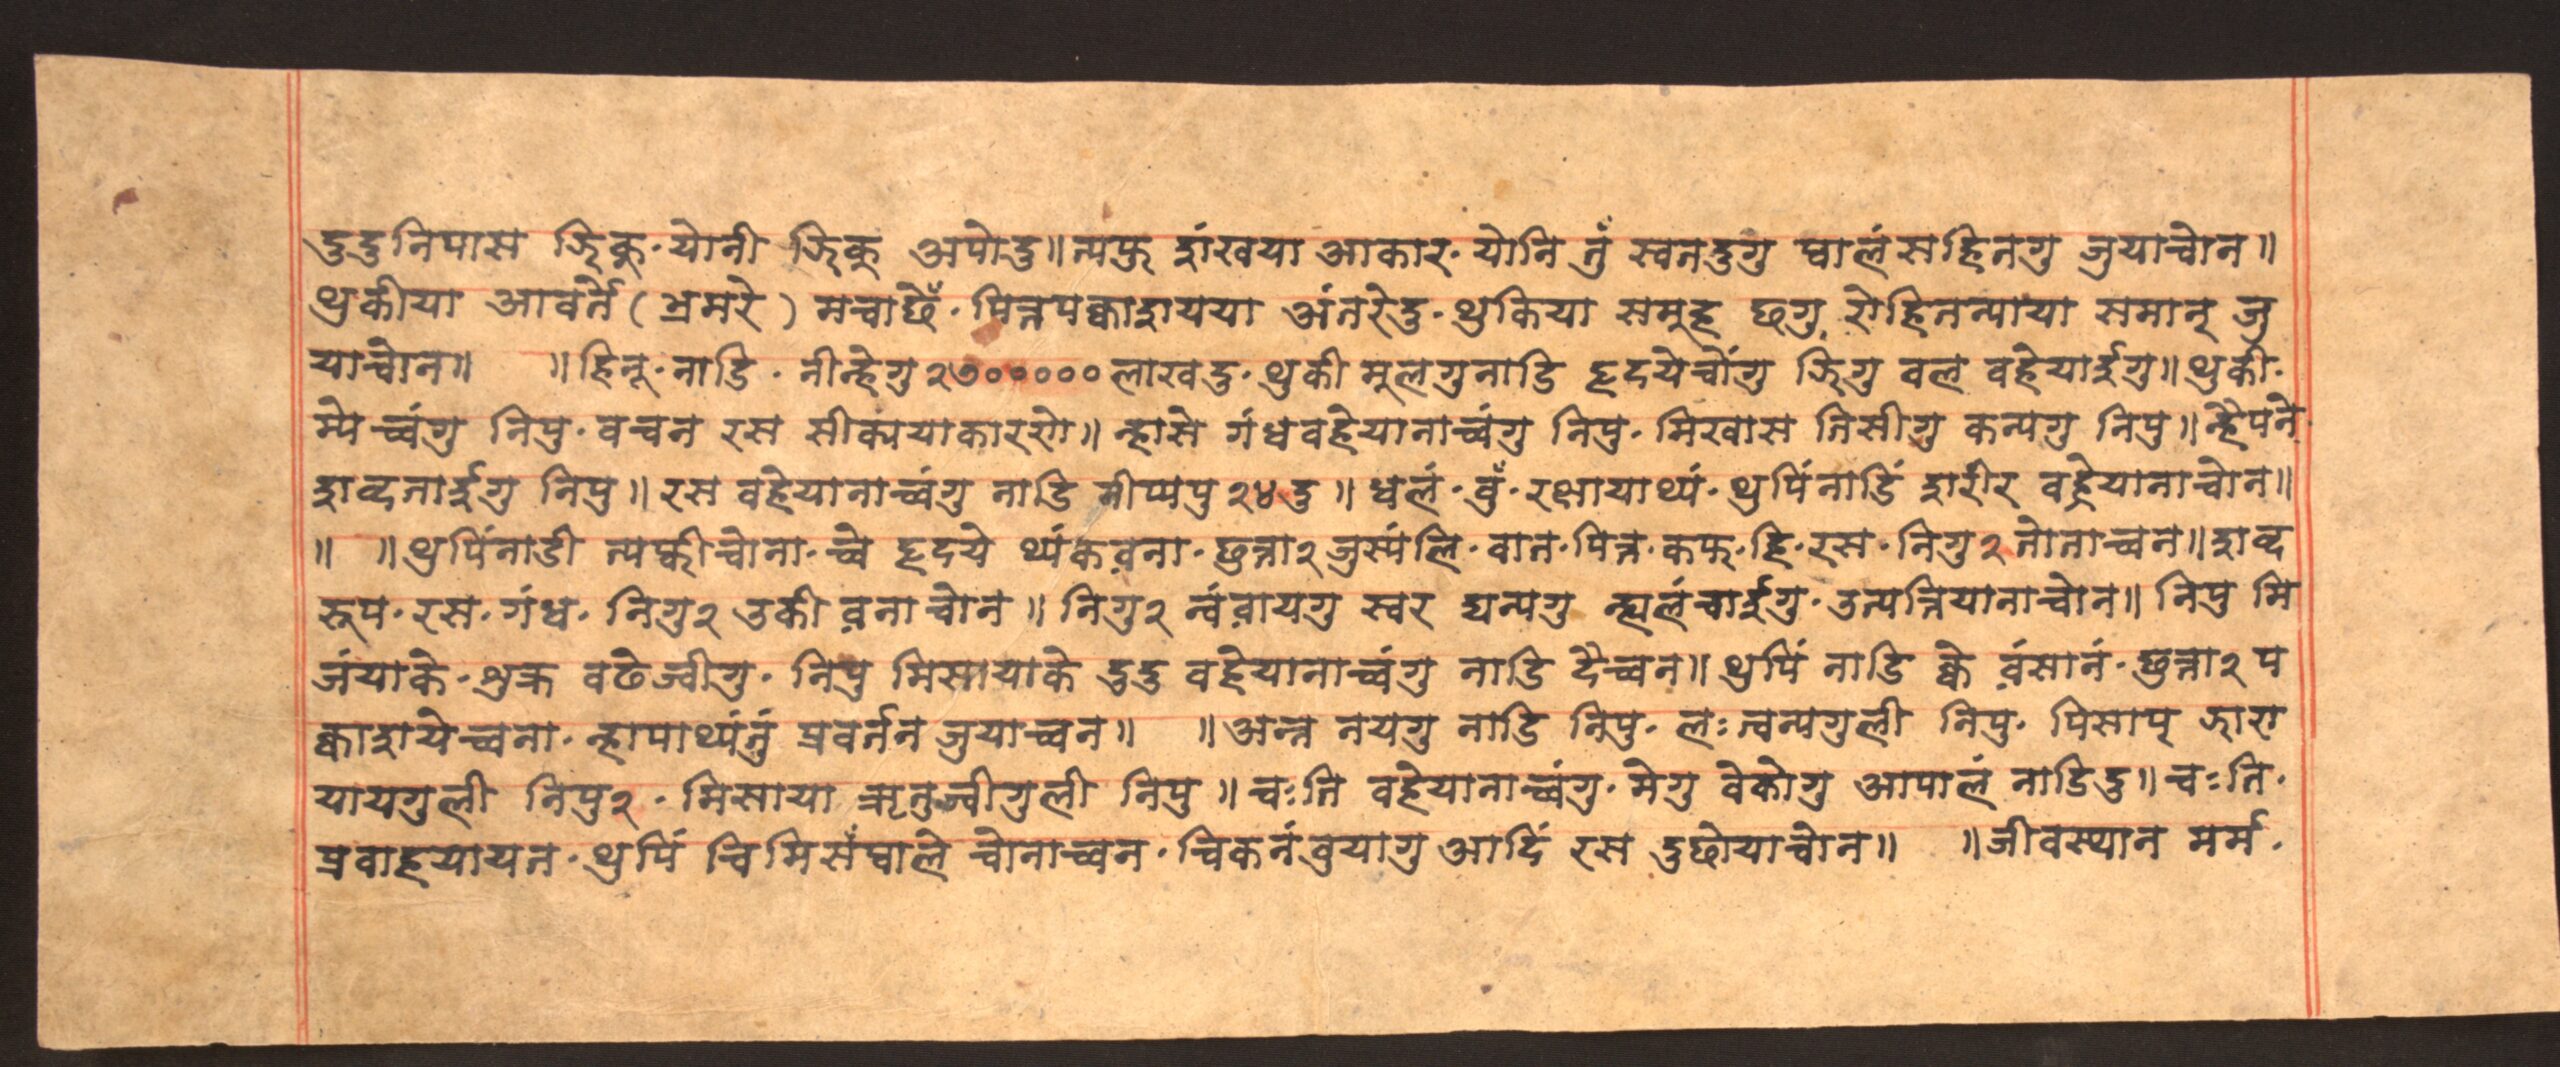 दुदुनिपास झिकु॰योनी झिकु अपोदु॥त्यफु शंखया आकार॰योनि तुँ स्वनदुगु घालंसहितगु जुयाचोन॥
थुकीया आवर्तै (भ्रमरे) मचाछेँ॰पित्तपक्वाशयया अंतरेदु॰थुकिया समुह छगु रोहितन्याया समान् जु
याचोन॥ ॥हिनू॰नाडि॰नीन्हेगु२७०००००० लाखदु॰थुकी मुलगुनाडि हृदयेचोंगु झिगु वल वहेयाईगु॥थुकी॰
म्पेच्वंगु निपु॰वचन रस सीकायाकारसो॥न्हासे गंधवहेयानाच्वंगु निपु॰मिखास तिसीगु कन्यगु निपु॥न्हैपंने
शब्दताईगु निपु॥रस वहेयानाच्वंगु नाडि नीप्यपु२४दु॥ध्वलं॰वुँ॰रक्षायाथ्यं॰थुपिंनाडिं शरीर वहेयानाचोन॥
॥ ॥थुपिंनाडी त्यफ्वीचोना॰च्वे हृदये थ्यंकव़ना॰छुत्ता२जुस्पंलि॰वात॰पित्त॰कफ॰हि॰रस॰निगु२तोनाच्वन॥शब्द
रूप॰रस॰गंध॰निगु२उकी व़नाचोन॥निगु२न्वंव़ायगु स्वर द्यन्यगु न्ह्यलंचाईगु॰उत्पत्तियानाचोन॥निपु मि
जंयाके॰शुक्र वढेज्वीगु॰निपु मिसायाके दुदु वहेयानाच्वंगु नाडि दैच्वन॥थुपिं नाडि क्वे व़ंसानं॰छुत्ता२प
क्वाशयेच्वना॰न्हापाथ्यंतुं प्रवर्तन जुयाच्वन॥ ॥अन्न नयगु नाडि निपु॰लःत्वन्यगुली निपु॰पिसाप् झारा
यायगुली निपु२॰मिसाया ऋतुज्वीगुली निपु॥चःति वहेयानाच्वंगु॰मेगु वेकोगु आपालं नाडिदु॥चःति॰
प्रवाहयायत॰थुपिं चिमिसँघाले चोनाच्वन॰चिकनंवुयागु आदिं रस दुछोयाचोन॥ ॥जीवस्थान मर्म॰